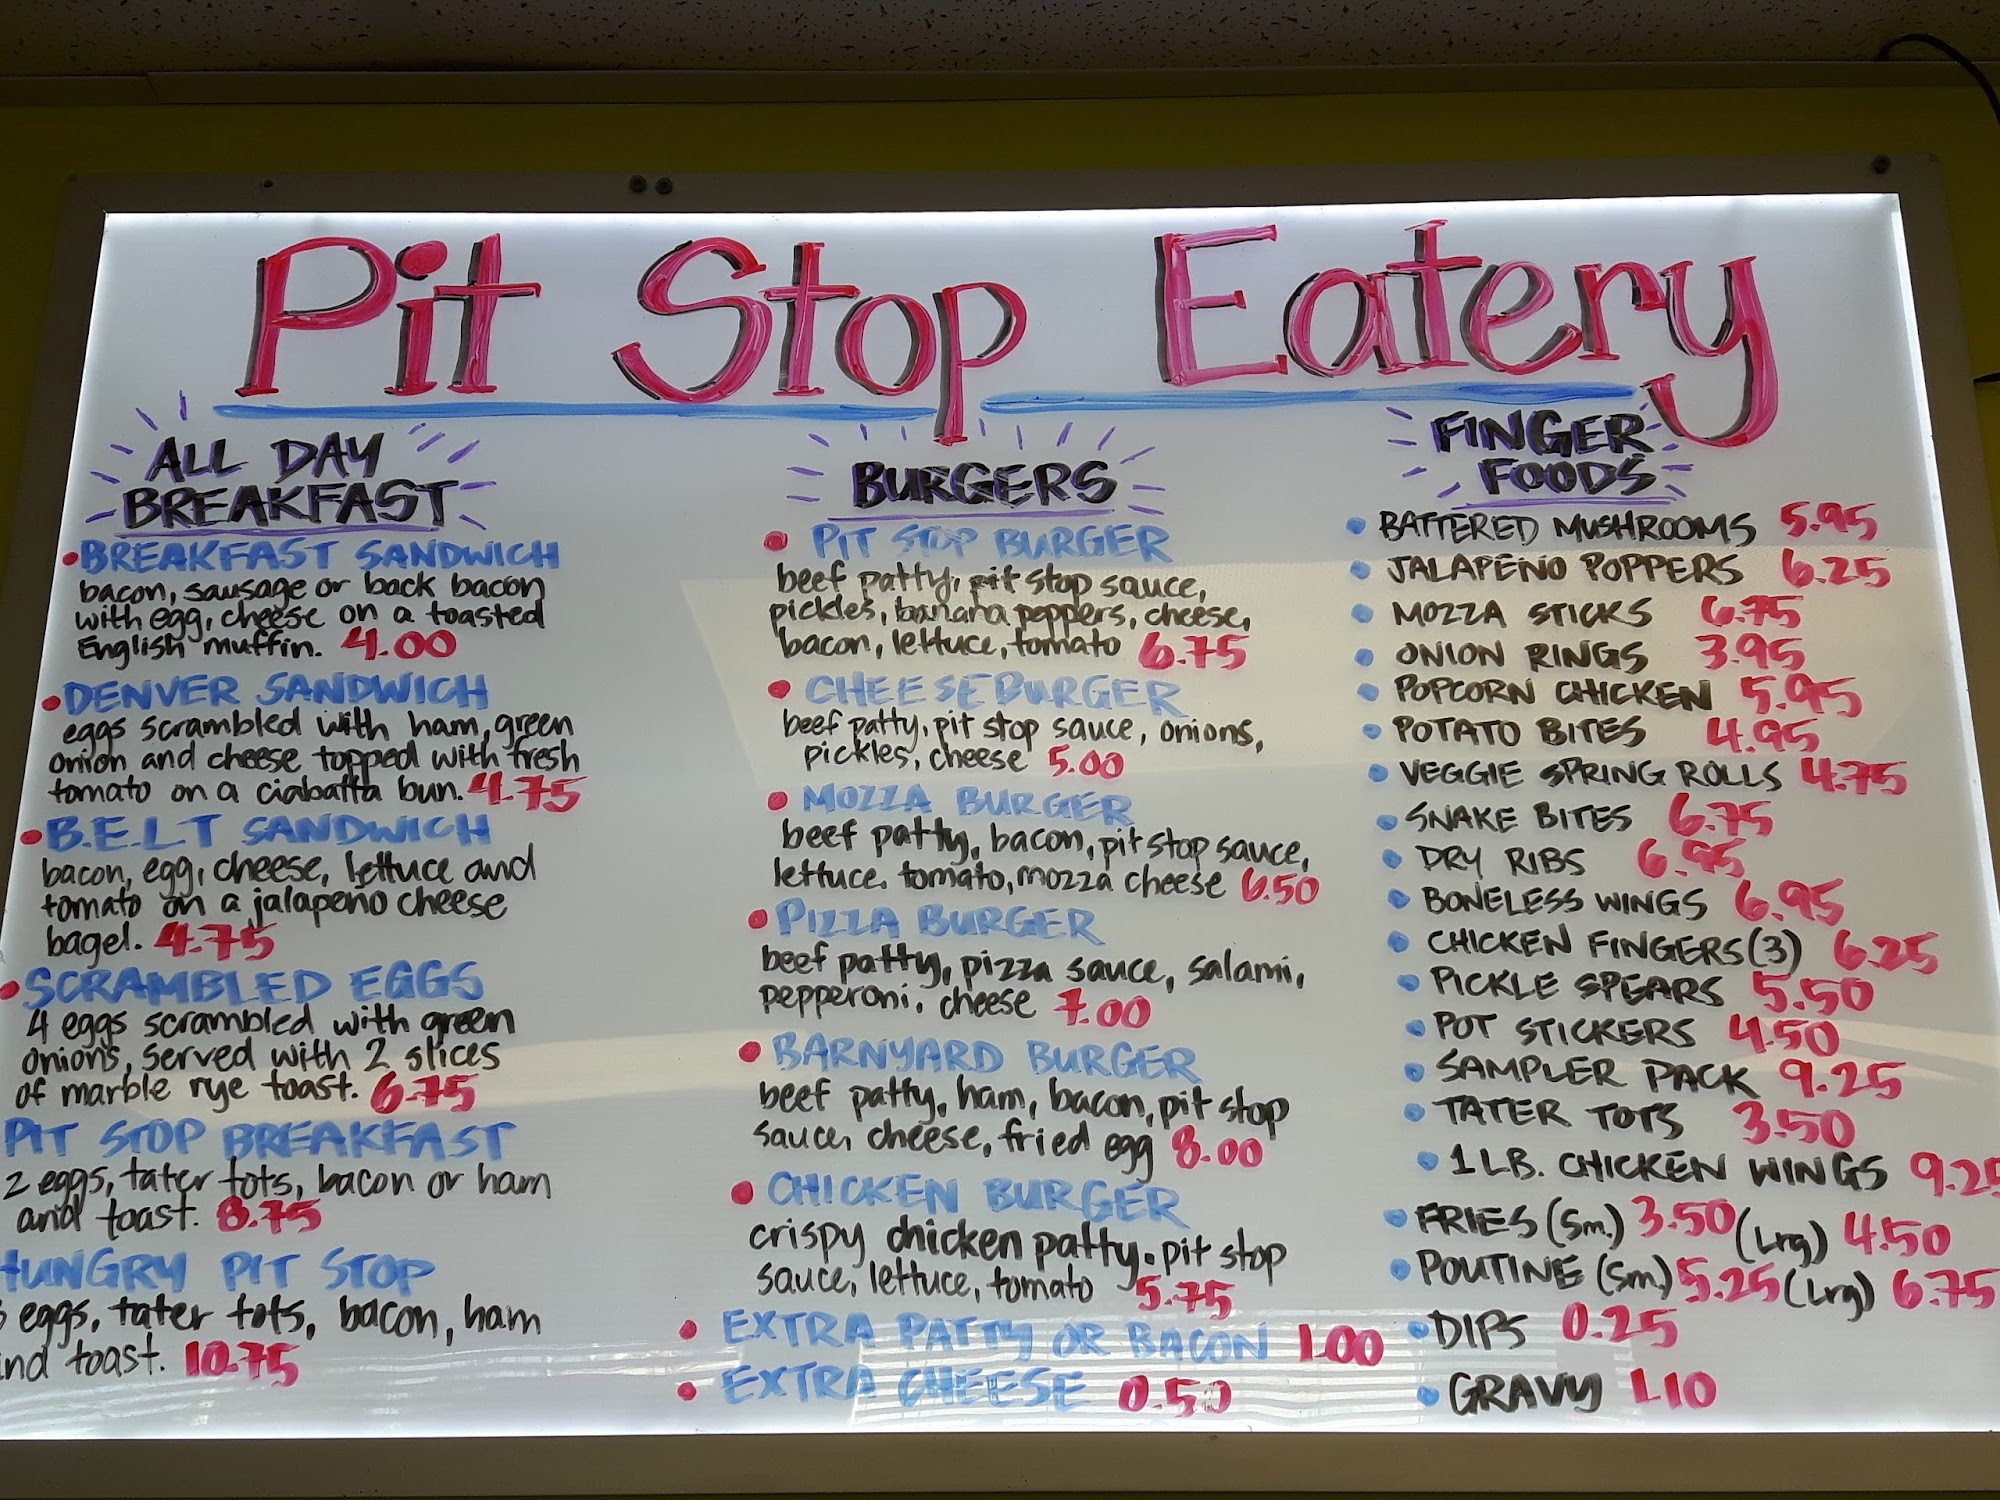 Pit Stop Eatery
ALL DAY
BREAKFAST
BREAKFAST SANDWICH
bacon, sausage or back bacon
with egg, cheese on a toasted
English muffin. 4.00
DENVER SANDWICH
eggs scrambled with ham, green
onion and cheese topped with fresh
tomato on a ciabatta bun. 4.75
B.E.L.T SANDWICH
bacon, egg, cheese, lettuce and
tomato on a jalapeño cheese
bagel. 4.75
SCRAMBLED EGGS
4 eggs scrambled with green
onions, served with 2 slices
of marble rye toast. 6.75
PIT STOP BREAKFAST
2 eggs, tater tots, bacon or ham
and toast. 8.75
HUNGRY PIT STOP
3 eggs, tater tots, bacon, ham
and toast. 10.75
BURGERS
PIT STOP BURGER
beef patty, pit stop sauce,
pickles, banana peppers, cheese,
bacon, lettuce, tomato 6.75
CHEESEBURGER
beef patty, pit stop sauce, onions,
pickles, cheese 5.00
MOZZA BURGER
beef patty, bacon, pit stop sauce,
lettuce, tomato, mozza cheese 6.50
PIZZA BURGER
beef patty, pizza sauce, salami,
pepperoni, cheese 7.00
BARNYARD BURGER
beef patty, ham, bacon, pit stop
sauce, cheese, fried egg 8.00
CHICKEN BURGER
crispy chicken patty, pit stop
sauce, lettuce, tomato 5.75
EXTRA PATTY OR BACON 1.00
EXTRA CHEESE 0.50
FINGER
FOODS
BATTERED MUSHROOMS 5.95
JALAPEÑO POPPERS 6.25
MOZZA STICKS 6.75
ONION RINGS 3.95
POPCORN CHICKEN 5.95
POTATO BITES 4.95
VEGGIE SPRING ROLLS 4.75
SNAKE BITES 6.75
DRY RIBS 6.95
BONELESS WINGS 6.95
CHICKEN FINGERS (3) 6.25
PICKLE SPEARS 5.50
POT STICKERS 4.50
SAMPLER PACK 9.25
TATER TOTS 3.50
1 LB. CHICKEN WINGS 9.25
FRIES (Sm.) 3.50 (Lrg) 4.50
POUTINE (Sm.) 5.25 (Lrg) 6.75
DIPS 0.25
GRAVY 1.10